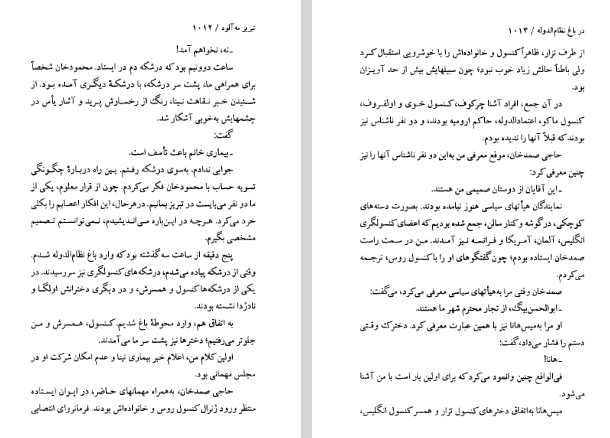 تبریز مه‌آلود / ۱۰۱۲
ـ نه، نخواهم آمد!
ساعت دوونیم بود که درشکه دم در ایستاد. محمودخان شخصاً
برای همراهی ما، پشت سر درشکه، با درشکهٔ دیگری آمده بود. از
شنیدن خبر نقاهت نینا، رنگ از رخسارش پرید و آثار یأس در
چشمهایش به‌خوبی آشکار شد.
گفت:
ـ بیماری خانم باعث تأسف است.
جوابی ندادم. به‌سوی درشکه رفتم. بین راه دربارهٔ چگونگی
تسویه حساب با محمودخان فکر می‌کردم. چون از قرار معلوم، یکی از
ما دو نفر می‌بایست در تبریز بمانیم. درهرحال، این افکار اعصابم را بکلی
خرد می‌کرد. هرچه در این‌باره می‌اندیشیدم، نمی‌توانستم تصمیم
مشخصی بگیرم.
پنج دقیقه از ساعت سه گذشته بود که وارد باغ نظام‌الدوله شدم.
وقتی از درشکه پیاده می‌شدم، درشکه‌های کنسولگری نیز سررسیدند. در
یکی از درشکه‌ها کنسول و همسرش، و در دیگری دخترانش اولگا و
نادژدا نشسته بودند.
به اتفاق هم، وارد محوطهٔ باغ شدیم. کنسول، همسرش و من
جلوتر می‌رفتیم؛ دخترها نیز پشت سر ما می‌آمدند.
اولین کلام من، اعلام خبر بیماری نینا و عدم امکان شرکت او در
مجلس مهمانی بود.
حاجی صمدخان، به‌همراه مهمانهای حاضر، در ایوان ایستاده
منتظر ورود ژنرال کنسول روس و خانواده‌اش بودند. فرمانروای انتصابی
در باغ نظام‌الدوله / ۱۰۱۳
از طرف تزار، ظاهراً کنسول و خانواده‌اش را با خوشرویی استقبال کرد
ولی باطناً حالش زیاد خوب نبود؛ چون سبیلهایش بیش از حد آویزان
بود.
در آن جمع، افراد آشنا چرکوف، کنسول خوی و اولفروف،
کنسول ماکو، اعتمادالدوله، حاکم ارومیه بودند، و دو نفر ناشناس نیز
بودند که قبلاً آنها را ندیده بودم.
حاجی صمدخان، موقع معرفی من به‌این دو نفر ناشناس آنها را نیز
چنین معرفی کرد:
ـ این آقایان از دوستان صمیمی من هستند.
نمایندگان هیأتهای سیاسی هنوز نیامده بودند. بصورت دسته‌های
کوچکی، در گوشه و کنار سالن، جمع شده بودیم که اعضای کنسولگری
انگلیس، آلمان، آمریکا و فرانسه نیز آمدند. من در سمت راست
صمدخان ایستاده بودم؛ چون گفتگوهای او را با کنسول روس، ترجمه
می‌کردم.
صمدخان وقتی مرا به‌هیأتهای سیاسی معرفی می‌کرد، می‌گفت:
ـ ابوالحسن‌بیگ، از تجار محترم شهر ما هستند.
او مرا به‌میس‌هانا نیز با همین عبارت معرفی کرد. دخترک وقتی
دستم را فشار می‌داد، گفت:
ـ هانا!
فی‌الواقع چنین وانمود می‌کرد که برای اولین بار است با من آشنا
می‌شود.
میس‌هانا به‌اتفاق دخترهای کنسول تزار و همسر کنسول انگلیس،